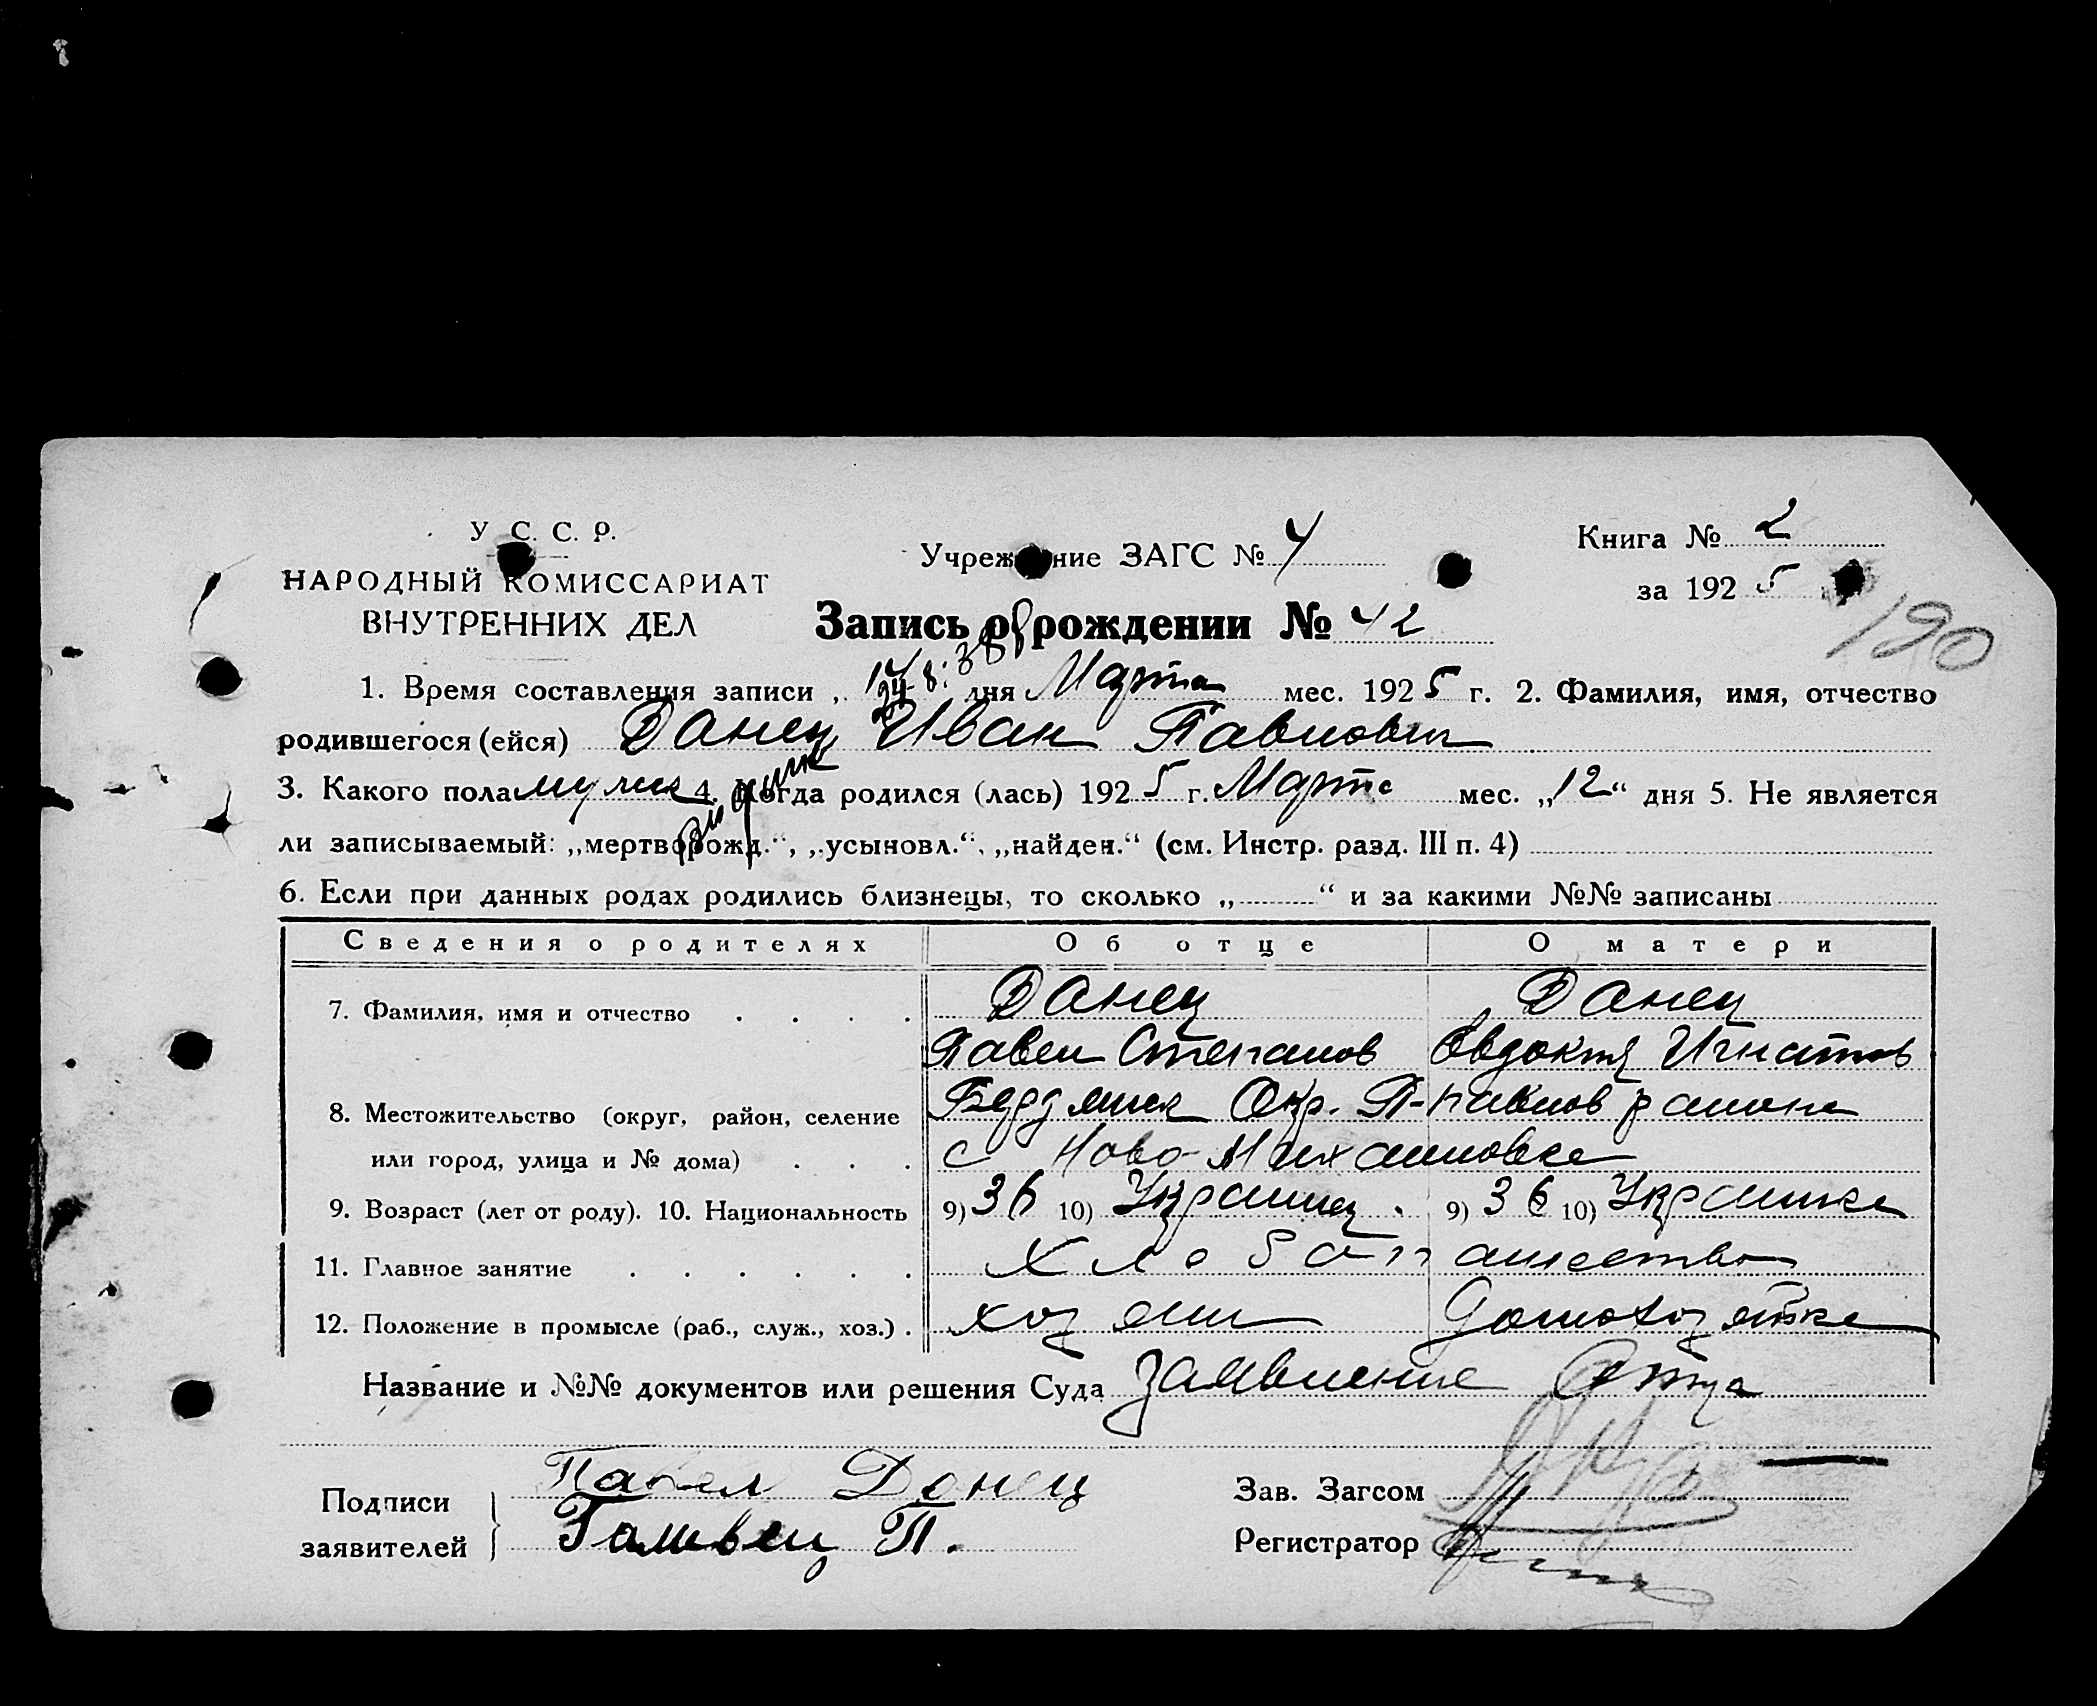 У С. С. Р.
НАРОДНЫЙ КОМИССАРИАТ
ВНУТРЕННИХ ДЕЛ
Учреждение ЗАГС № 4
Книга № 2
за 1925
190
Запись о рождении № 42
1. Время составления записи „ 14 дня Марта мес. 1925 г. 2. Фамилия, имя, отчество
родившегося (ейся) Данец Иван Павлович
3. Какого пола 4. Когда родился (лась) 1925 г. Марта мес. „12“ дня 5. Не является
ли записываемый: „мертворожд.“, „усыновл.“, „найден.“ (см. Инстр. разд. III п. 4)
6. Если при данных родах родились близнецы, то сколько „ “ и за какими №№ записаны
Сведения о родителях Об отце О матери
7. Фамилия, имя и отчество Данец Данец
Павел Степанов Овдокия Игнатов
8. Местожительство (округ, район, селение Бердянск Окр. П-павлов района
или город, улица и № дома) с Ново-Михайловка
9. Возраст (лет от роду). 10. Национальность 9) 36 10) Украинец. 9) 36 10) Украинка
11. Главное занятие Хлебопашество
12. Положение в промысле (раб., служ., хоз.) хозяин Домохозяйка
Название и №№ документов или решения Суда Заявление Отца
Подписи заявителей Павел Донец
П.
Зав. Загсом
Регистратор